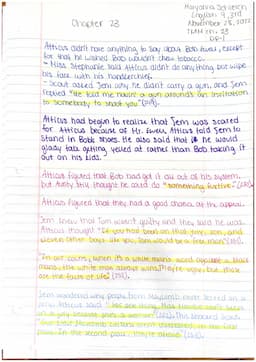 Maryanna
English 9,
November 28, 2022
TMM ch. 23
DP-1
Chapter 23
Atticus didn't have anything to say about Bob Ewell, except
for that he wished Bob wouldn't chew tobacco.
- Miss Stephanie said Atticus didn't do anything but wipe
his face with his handkerchief.
- Scout asked Jem why he didn't carry a gun, and Jem
replied "He told me havin' a gun around's an invitation
to somebody to shoot you"
Atticus had begun to realize that Jem was scared
for Atticus because of Mr. Ewell, Atticus told Jem to
stand in Bob's shoes. He also said that he would
gladly take getting yelled at rather than Bob taking it
out on his kids.
Atticus figured that Bob had got it all out of his system,
but Aunty still thought he could do "something furtive."
Atticus figured that they had a good chance at the appeal.
Jem knew that Tom wasn't guilty and they said he was.
Atticus thought "If you had been on that jury, son, and
eleven other boys like you, Tom would be a free man"
"In our courts, when it's a white man's word against a black
man's, the white man always wins. They're ugly, but those
are the facts of life"
Jem wondered why people from Maycomb never served on a
jury. Atticus said